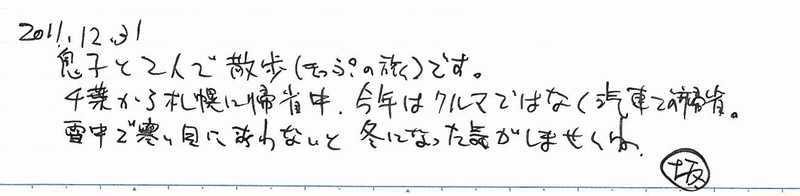 2011.12.31
息子と2人で散歩(きっぷの旅)です。
千葉から札幌に帰省中。今年はクルマではなく汽車での帰省。
雪中で寒い目にあわないと冬になった気がしませんね。
坂